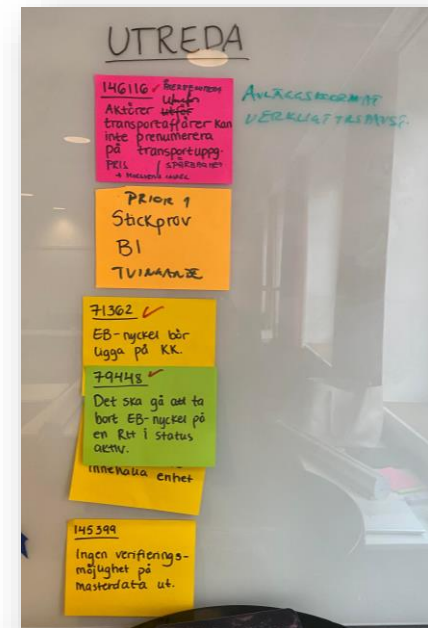 UTREDA
146116 ✓
Aktörer utför
transportaffärer kan
inte prenumerera
på transportuppg.
PRIS / SPÅRBARHET
VERKLIGT
PRIOR 1
Stickprov
BI
TVINGANDE
71362 ✓
EB-nyckel bör
ligga på KK.
79448 ✓
Det ska gå att ta
bort EB-nyckel på
en Rtt i status
aktiv.
innehålla enhet
145399
Ingen verifierings-
möjlighet på
masterdata ut.